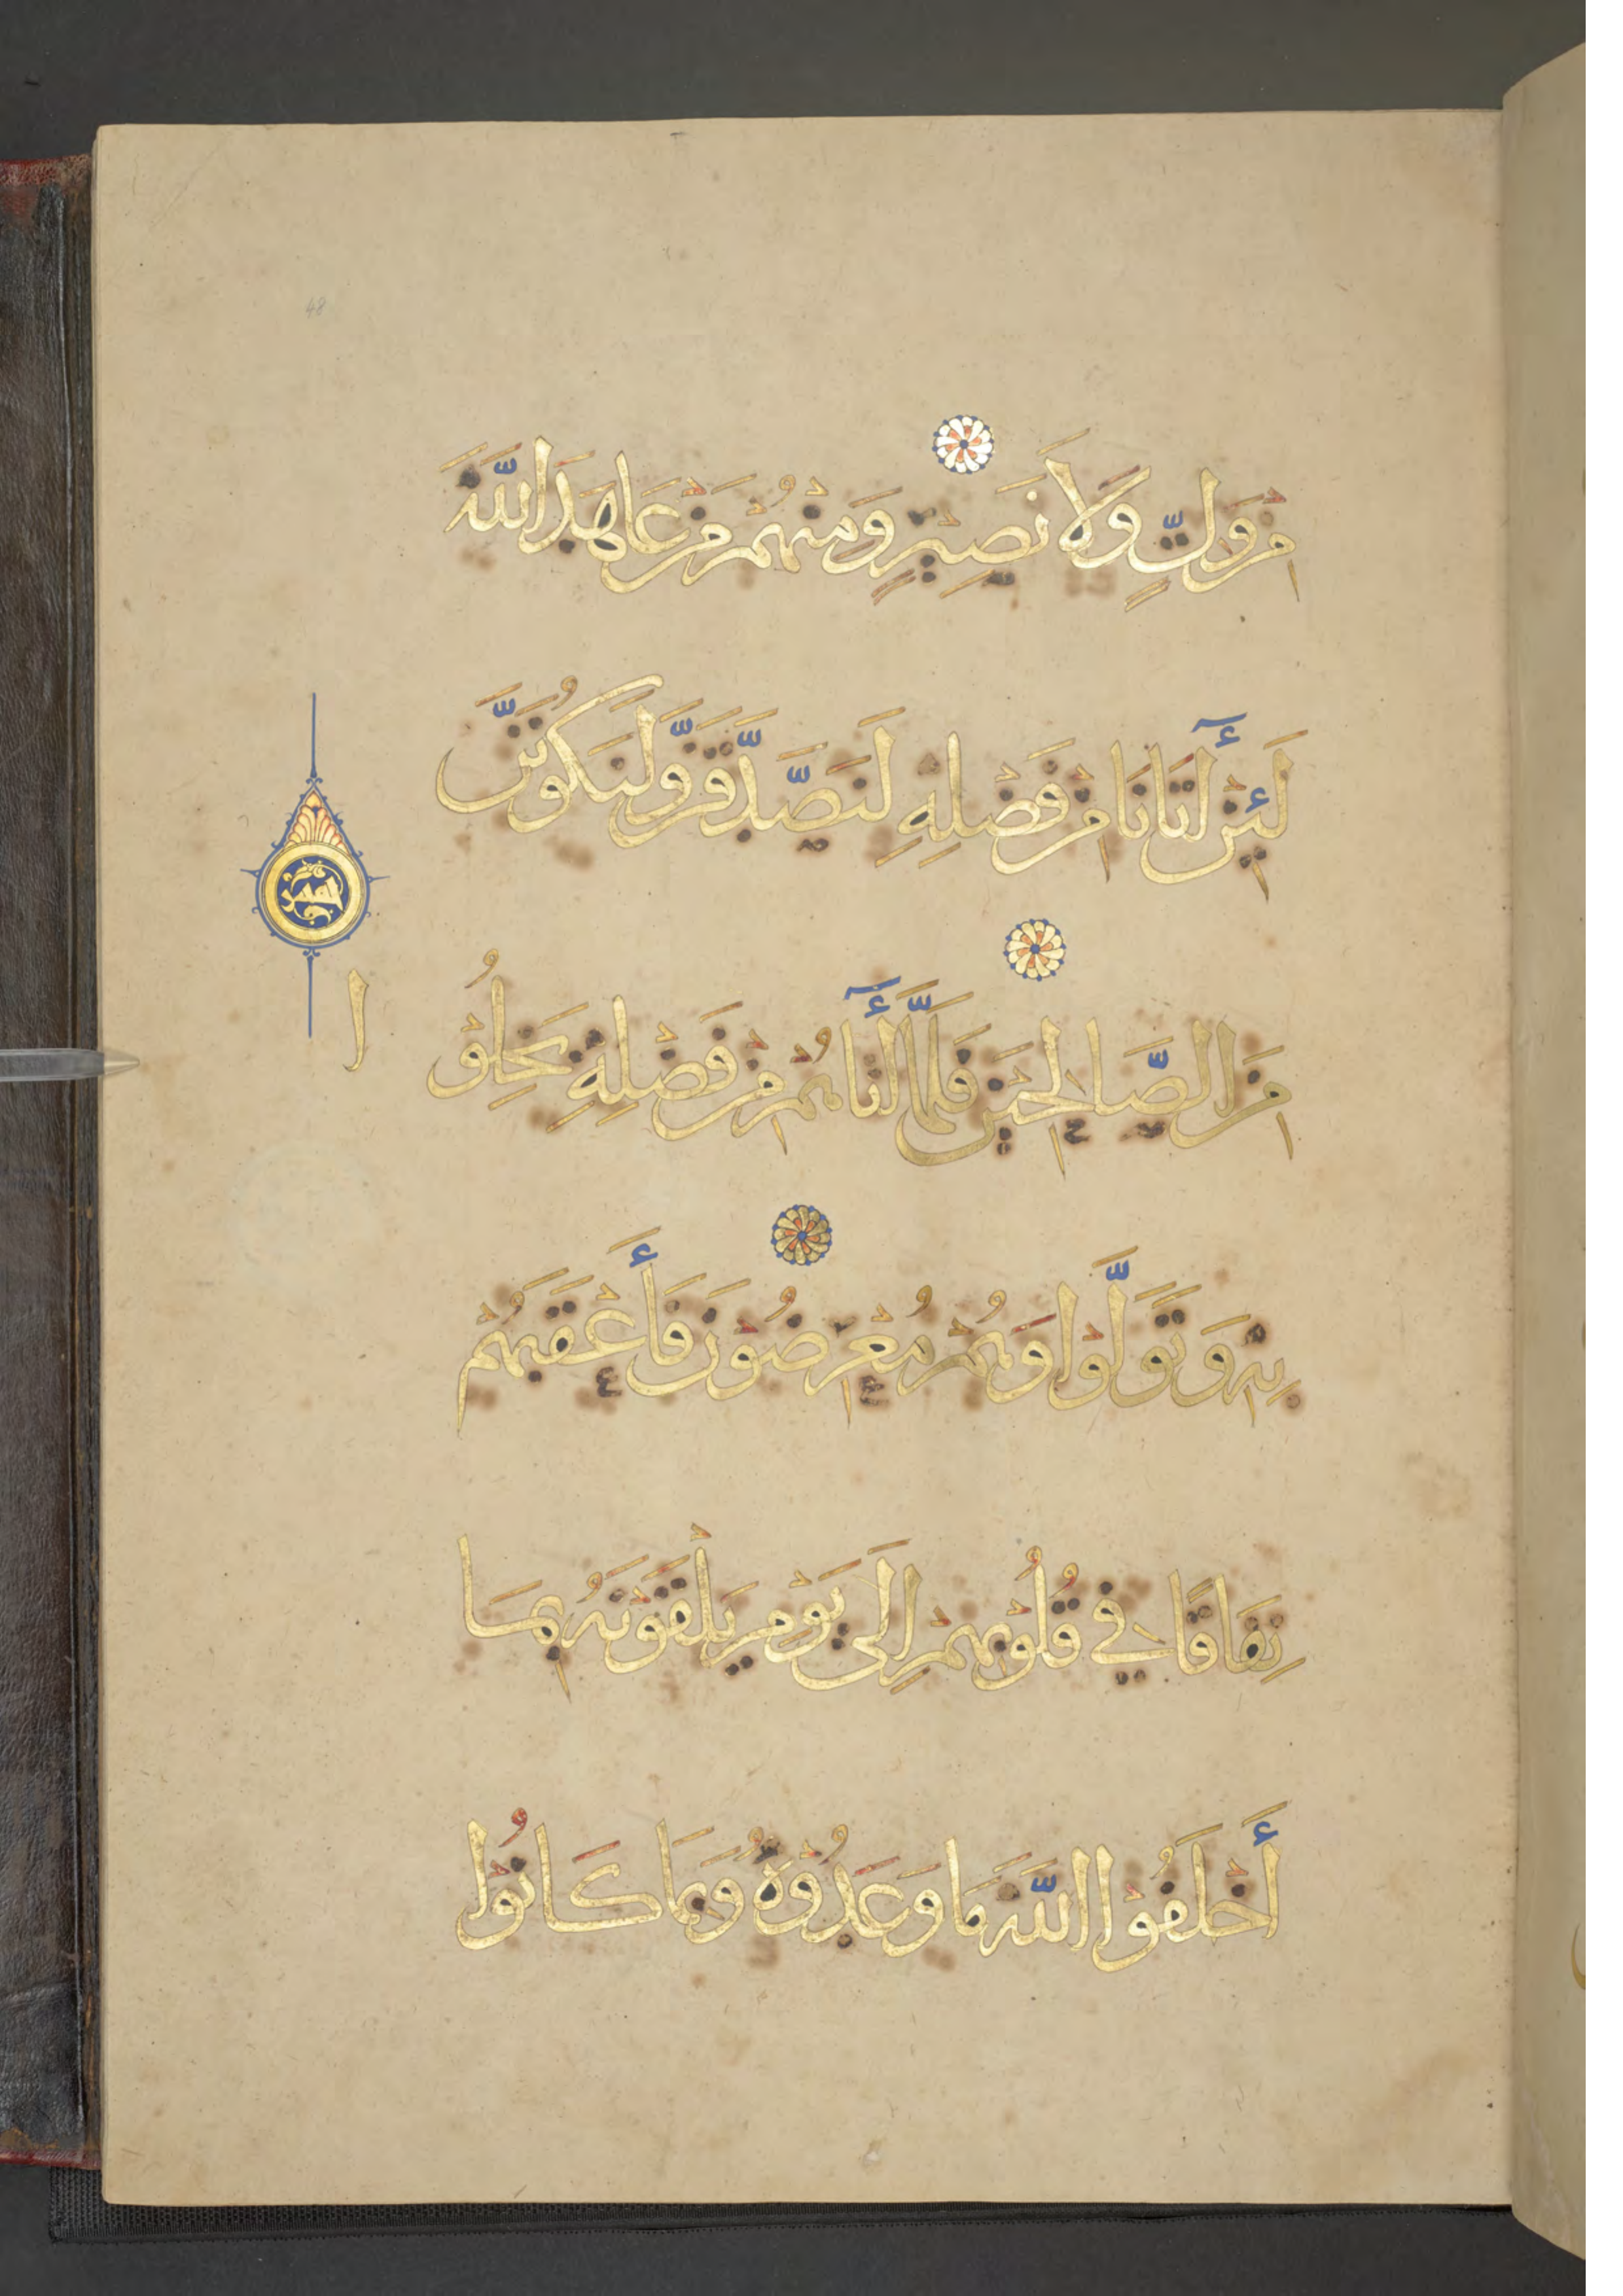 مِنْ وَلِيٍّ وَلَا نَصِيرٍ وَمِنْهُمْ مَنْ عَاهَدَ اللَّهَ
لَئِنْ آتَانَا مِنْ فَضْلِهِ لَنَصَّدَّقَنَّ وَلَنَكُونَنَّ
مِنَ الصَّالِحِينَ فَلَمَّا آتَاهُمْ مِنْ فَضْلِهِ بَخِلُوْا
بِهِ وَتَوَلَّوْا وَهُمْ مُعْرِضُونَ فَأَعْقَبَهُمْ
نِفَاقًا فِي قُلُوبِهِمْ إِلَى يَوْمِ يَلْقَوْنَهُ بِمَا
أَخْلَفُوْا اللَّهَ مَا وَعَدُوْهُ وَبِمَا كَانُوْا
48